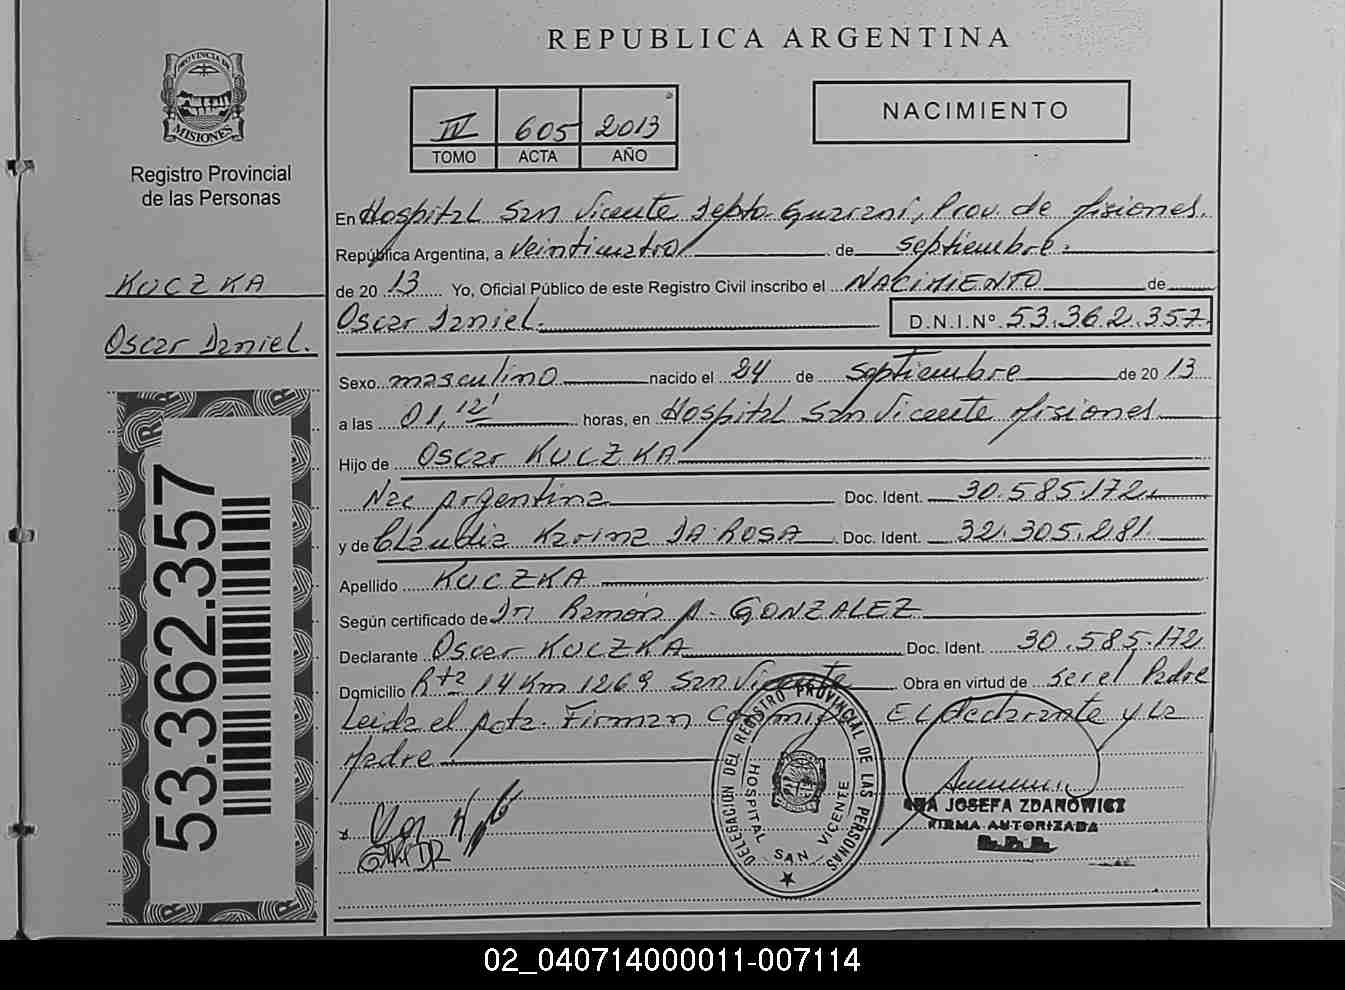 REPUBLICA ARGENTINA
PROVINCIA DE
MISIONES
Registro Provincial
de las Personas
KUCZKA
Oscar Daniel.
53.362.357
IV 605 2013
TOMO ACTA AÑO
NACIMIENTO
En Hospital San Vicente Depto Guaraní, Prov. de Misiones.
República Argentina, a veinticuatro de septiembre.
de 2013 Yo, Oficial Público de este Registro Civil inscribo el NACIMIENTO de
Oscar Daniel. D.N.I.Nº 53.362.357
Sexo masculino nacido el 24 de septiembre de 2013
a las 01,12' horas, en Hospital San Vicente Misiones
Hijo de Oscar KUCZKA
Nac Argentina Doc. Ident. 30.585.172
y de Claudia Karina DA ROSA Doc. Ident. 32.305.281
Apellido KUCZKA
Según certificado de Dr Ramón A. GONZALEZ
Declarante Oscar KUCZKA Doc. Ident. 30.585.172
Domicilio Rta 14 Km 1269 San Vicente Obra en virtud de ser el Padre
Leida el Acta. Firman Conmigo El declarante y la
Madre
DELEGACION DEL REGISTRO PROVINCIAL DE LAS PERSONAS
HOSPITAL SAN VICENTE
JOSEFA ZDANOWICZ
FIRMA AUTORIZADA
02_040714000011-007114